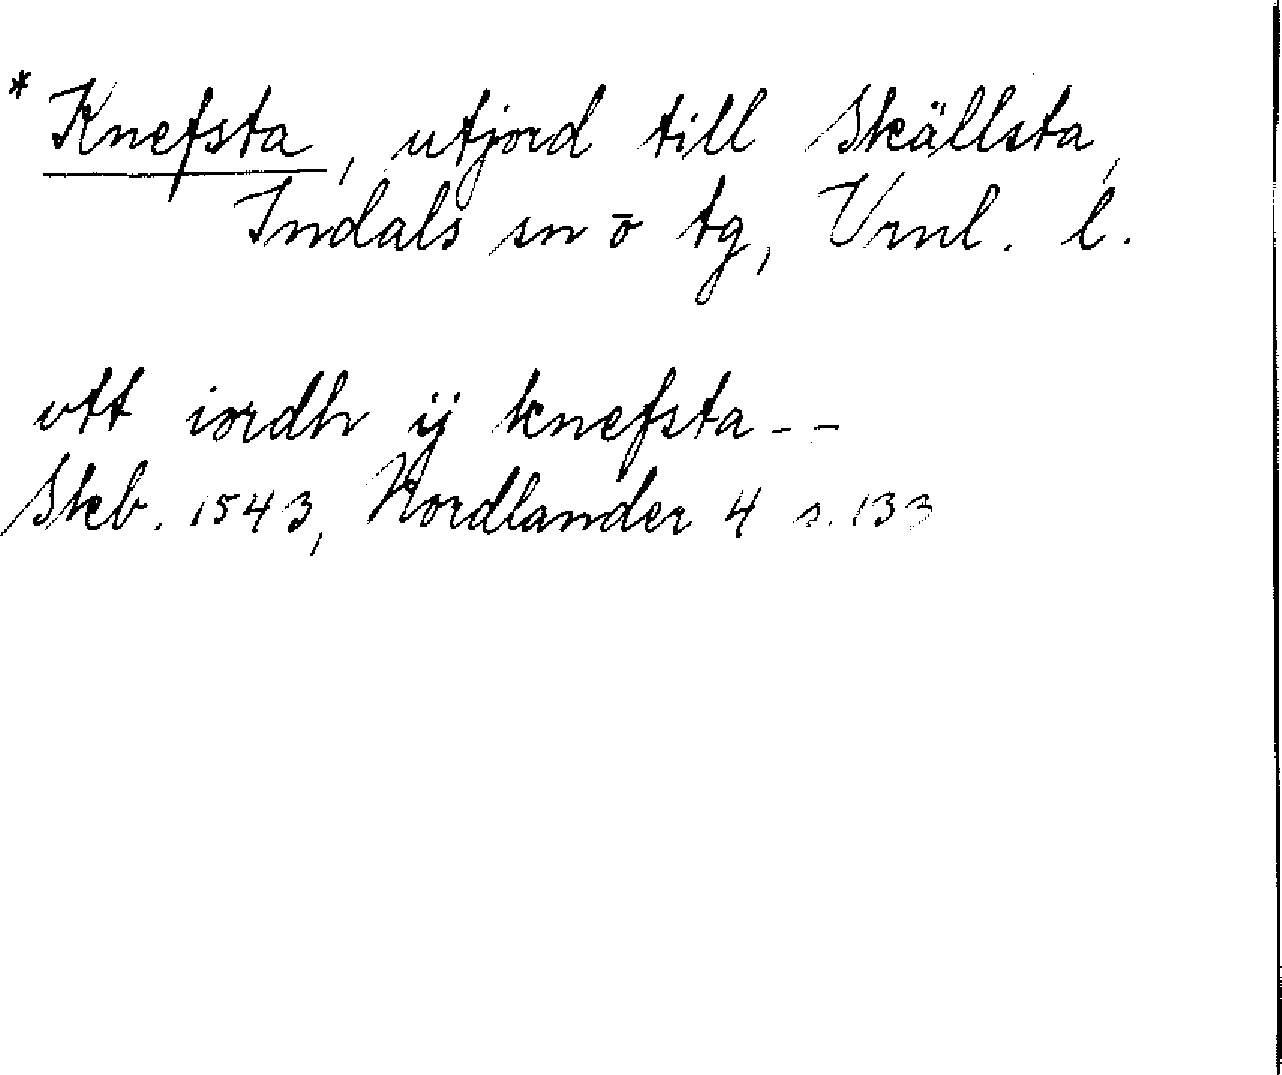 * Knefsta, utjord till Skällsta,
Indals sn o tg, Vrnl. l.
vtt iordh ij knefsta - -
Skb. 1543, Nordlander 4 s. 133